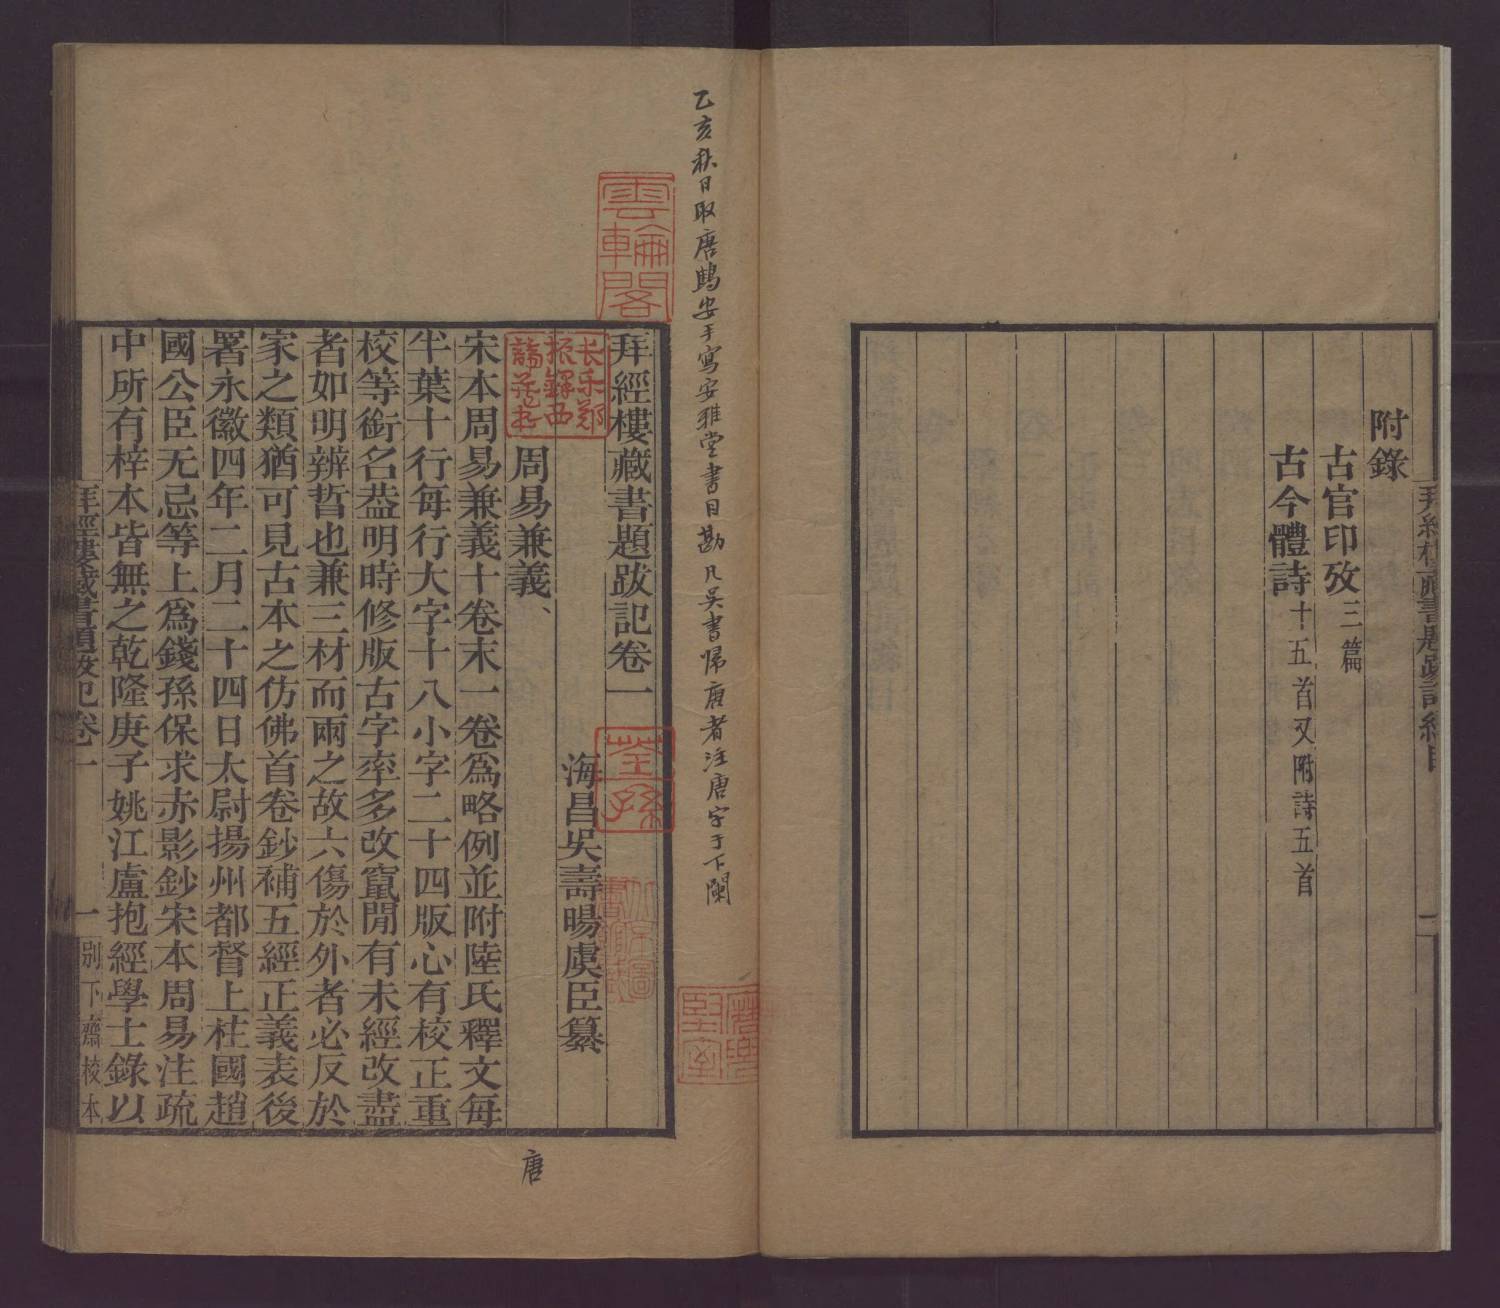 附錄
古官印攷三篇
古今體詩十五首又附詩五首
乙亥秋日取唐鷦安手寫安雅堂書目勘凡吳書歸唐者注唐字于下闌
雲輪閣
荃孫
長樂鄭振鐸西諦藏書
拜經樓藏書題跋記卷一
海昌吳壽暘虞臣纂
周易兼義、
宋本周易兼義十卷末一卷爲略例並附陸氏釋文每
半葉十行每行大字十八小字二十四版心有校正重
校等銜名葢明時修版古字率多改竄閒有未經改盡
者如明辨晢也兼三材而兩之故六傷於外者必反於
家之類猶可見古本之仿佛首卷鈔補五經正義表後
署永徽四年二月二十四日太尉揚州都督上柱國趙
國公臣无忌等上爲錢孫保求赤影鈔宋本周易注疏
中所有梓本皆無之乾隆庚子姚江盧抱經學士錄以
拜經樓藏書題跋記卷一
一
別下齋校本
唐